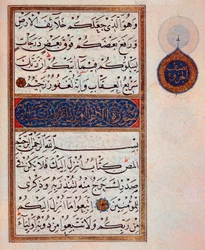 وهو الذي جعلكم خلائف الأرض
ورفع بعضكم فوق بعض درجات
ليبلوكم في ما آتاكم إن ربك
سريع العقاب وإنه لغفور رحيم
سورة الأعراف
بسم الله الرحمن الرحيم
المص كتاب أنزل إليك فلا يكن في
صدرك حرج منه لتنذر به وذكرى
للمؤمنين اتبعوا ما أنزل إليكم
من ربكم ولا تتبعوا من دونه أولياء